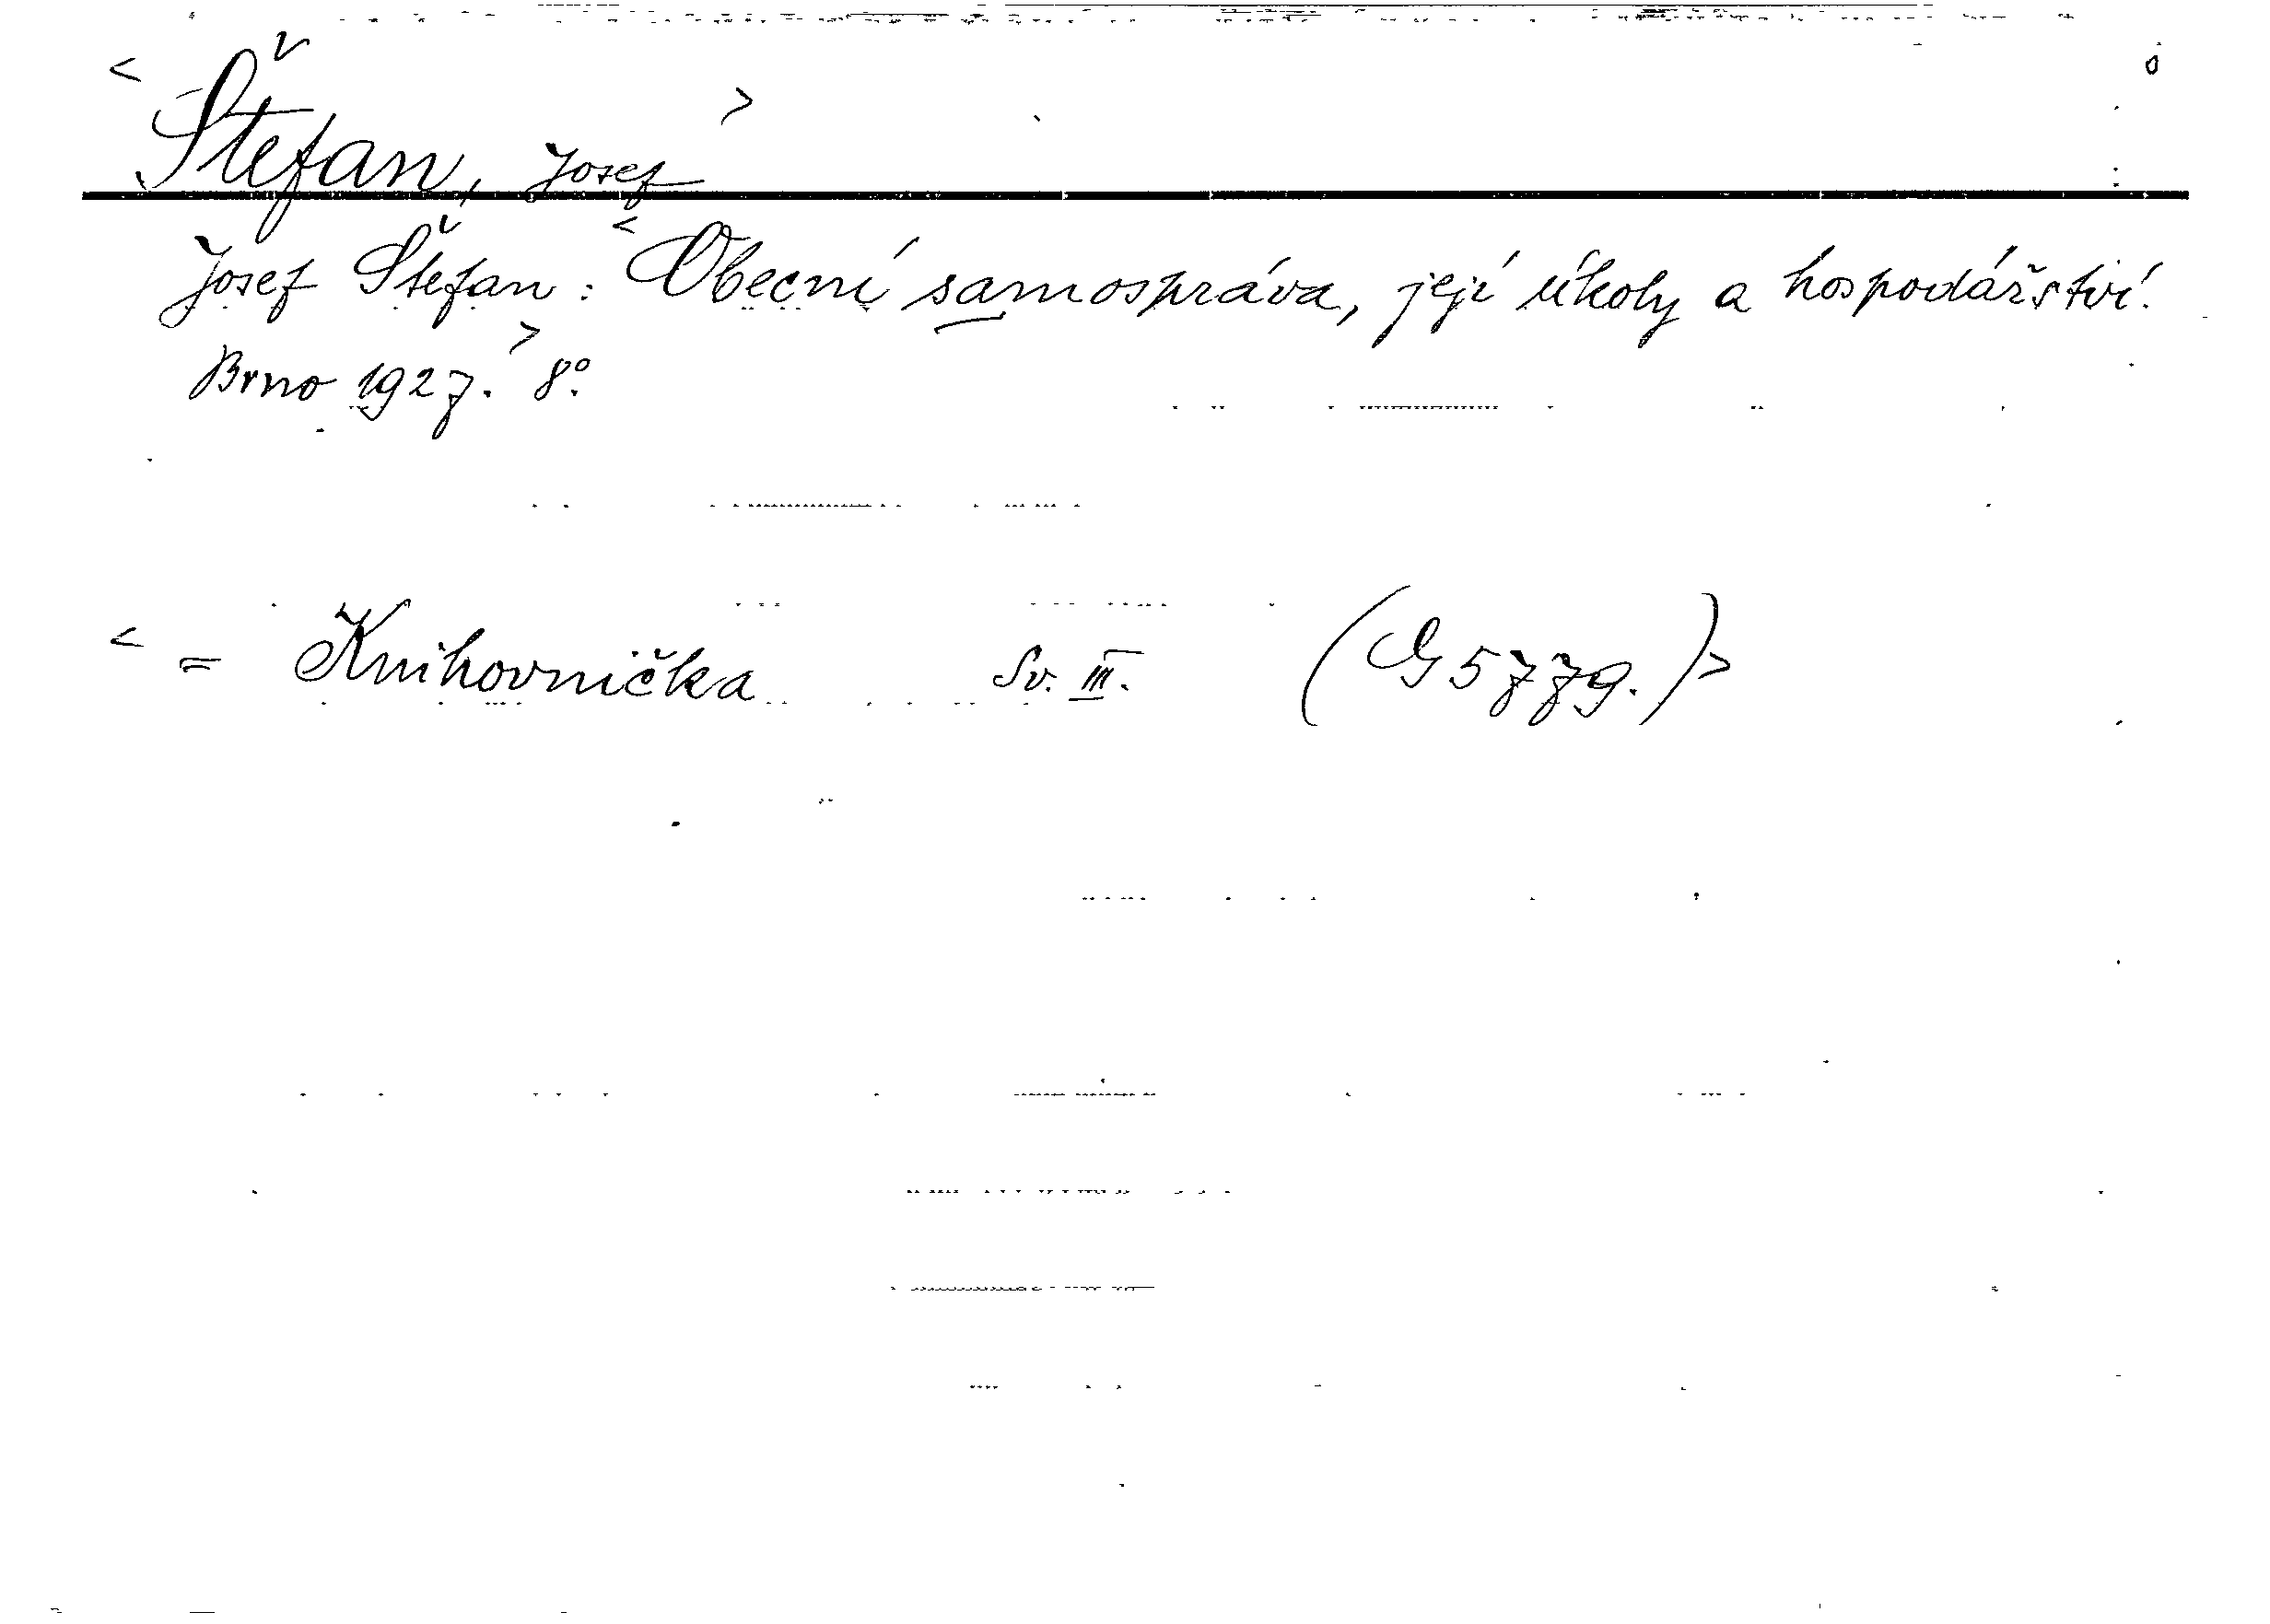 < Štefan, Josef >
Josef Štefan: < Obecní samospráva, její úkoly a hospodářství.
Brno 1927. > 8°.
< = Knihovnička Sv. III. (G 5779.) >